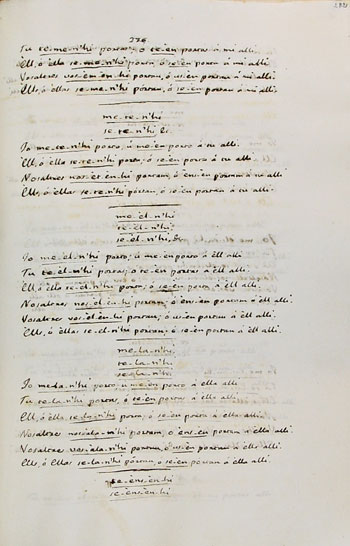 226
Tu te-me-n'hi portas, ó te-en portas á mi alli.
Ell, ó ella se-me-n'hi porta, ó se-en porta á mi alli.
Vosaltres vos-em-en-hi portau, ó us-en portau á mi alli.
Ells, ó ellas se-me-n'hi portan, ó se-en portan á mi alli.
me-te-n'hi
se-te-n'hi &c.
Jo me-te-n'hi porto, ó me-en porto á tu alli.
Ell, ó ella se-te-n'hi porta, ó se-en porta á tu alli.
Nosaltres nos-et-en-hi portam, ó ens-en portam á tu alli.
Ells, ó ellas se-te-n'hi portan, ó se-en portan á tu alli.
me-el-n'hi
te-el-n'hi
se-el-n'hi, &c.
Jo me-el-n'hi porto, ó me-en porto á ell alli.
Tu te-el-n'hi portas, ó te-en portas á ell alli.
Ell, ó ella se-el-n'hi porta, ó se-en porta á ell alli.
Nosaltres nos-el-en-hi portam, ó ens-en portam á ell alli.
Vosaltres vos-el-en-hi portau, ó us-en portau á ell alli.
Ells, ó ellas se-el-n'hi portan, ó se-en portan á ell alli.
me-la-n'hi
te-la-n'hi
se-la-n'hi
Jo me-la-n'hi porto, ó me-en porto á ella alli.
Tu te-la-n'hi portas, ó te-en portas á ella alli.
Ell, ó ella se-la-n'hi porta, ó se-en porta á ella alli.
Nosaltres nos-la-n'hi portam, ó ens-en portam á ella alli.
Vosaltres vos-la-n'hi portau, ó us-en portau á ella alli.
Ells, ó Ellas se-la-n'hi portan, ó se-en portan á ella alli.
se-ens-en-hi
te-ens-en-hi